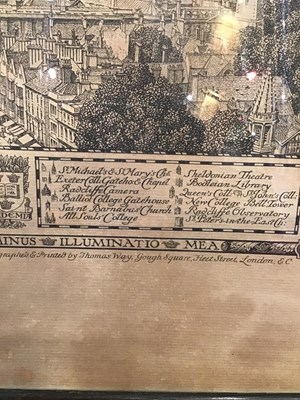 St Michael's & St Mary's Chs
Exeter Coll. Gateho. & Chapel
Radcliffe Camera
Balliol College Gatehouse
Saint Barnabas Church
All Souls College
Sheldonian Theatre
Bodleian Library
Queen's Coll. St John's Coll:
New College Bell Tower
Radcliffe Observatory
St Peter's-in-the-East Ch:
MINUS ILLUMINATIO MEA
& Printed by Thomas Way, Gough Square, Fleet Street, London, E C